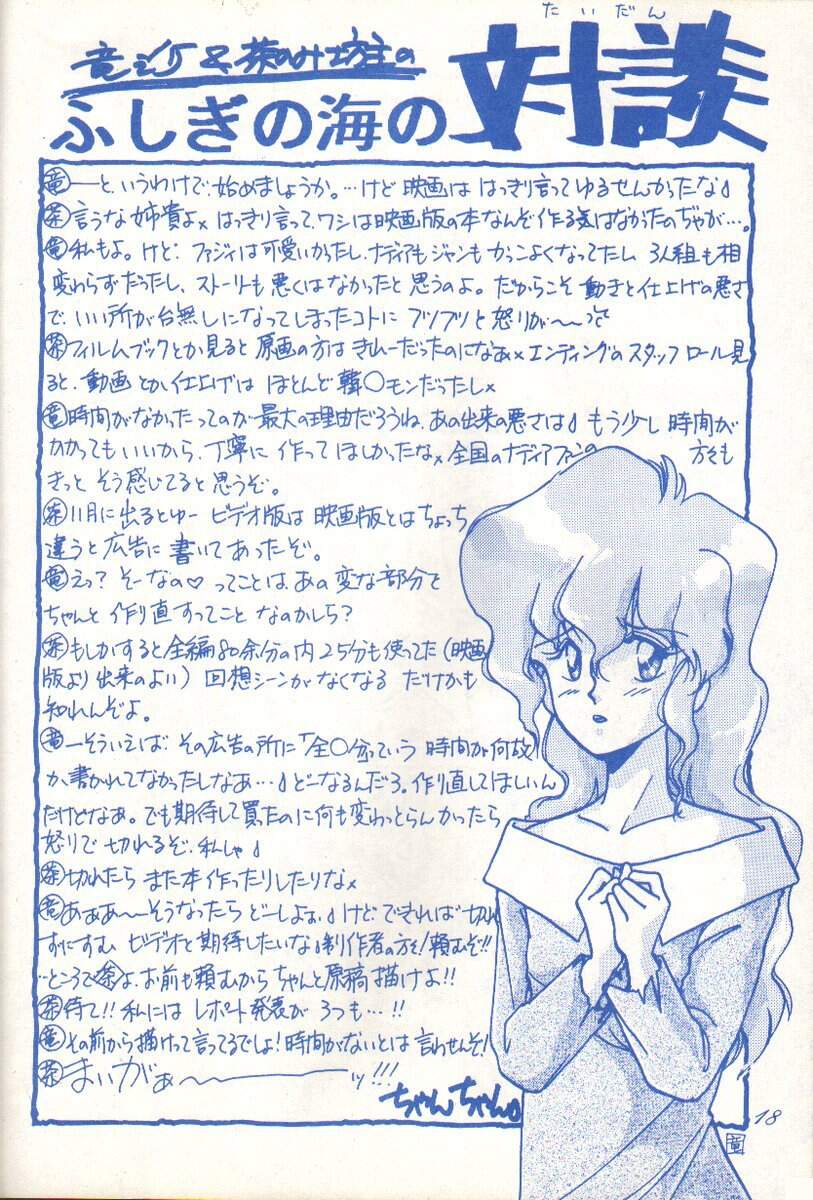 たいだん
竜之介&茶のみ坊主の
ふしぎの海の対談
竜―と、いうわけで、始めましょうか。…けど映画は はっきり言ってゆるせんかったな♪
茶言うな姉貴よ× はっきり言って、ワシは映画版の本なんぞ作る気はなかったのぢゃが…。
竜私もよ。けど、ファジィは可愛いかったし、ナディアもジャンもかっこよくなってたし 3人組も相
変わらずだったし、ストーリーも悪くはなかったと思うのよ。だからこそ動きと仕上げの悪さ
で、いい所が台無しになってしまったコトに ブツブツと怒りが〜〜って
茶フィルムブックとか見ると原画の方はきれーだったのになぁ×エンディングのスタッフロール見
ると、動画とか仕上げは ほとんど韓○モンだったし×
竜時間がなかったってのが最大の理由だろうね、あの出来の悪さは♪ もう少し時間が
かかってもいいから、丁寧に作ってほしかったな×全国のナディアファンの 方々も
きっと そう感じてると思うぞ。
茶11月に出るとゆー ビデオ版は映画版とはちょっち
違うと広告に書いてあったぞ。
竜えっ? そーなの♡ ってことは、あの変な部分を
ちゃんと作り直すってこと なのかしら?
茶もしかすると全編80余分の内25分も使ってた(映画
版より出来のよい)回想シーンがなくなる だけかも
知れんぞよ。
竜―そういえば、その広告の所に「全○分」っていう時間が何故
か、書かれてなかったしなぁ…♪どーなるんだろ。作り直してほしいん
だけどなぁ。でも期待して買ったのに何も変わっとらんかったら
怒りで切れるぞ、私しゃ♪
茶切れたら また本作ったりしたりな×
竜あぁぁ〜〜そうなったら どーしよぉ♪けど、できれば切れ
ずにすむ ビデオを期待したいな♪制作者の方々!頼むぞ!!
…ところで茶よ、お前も頼むからちゃんと原稿描けよ!!
茶待て!!私には レポート発表が 3つも…!!
竜その前から描けって言ってるでしょ!時間がないとは言わせんぞ!
茶まいがぁ〜〜ッ!!!
ちゃんちゃん♪
18
竜